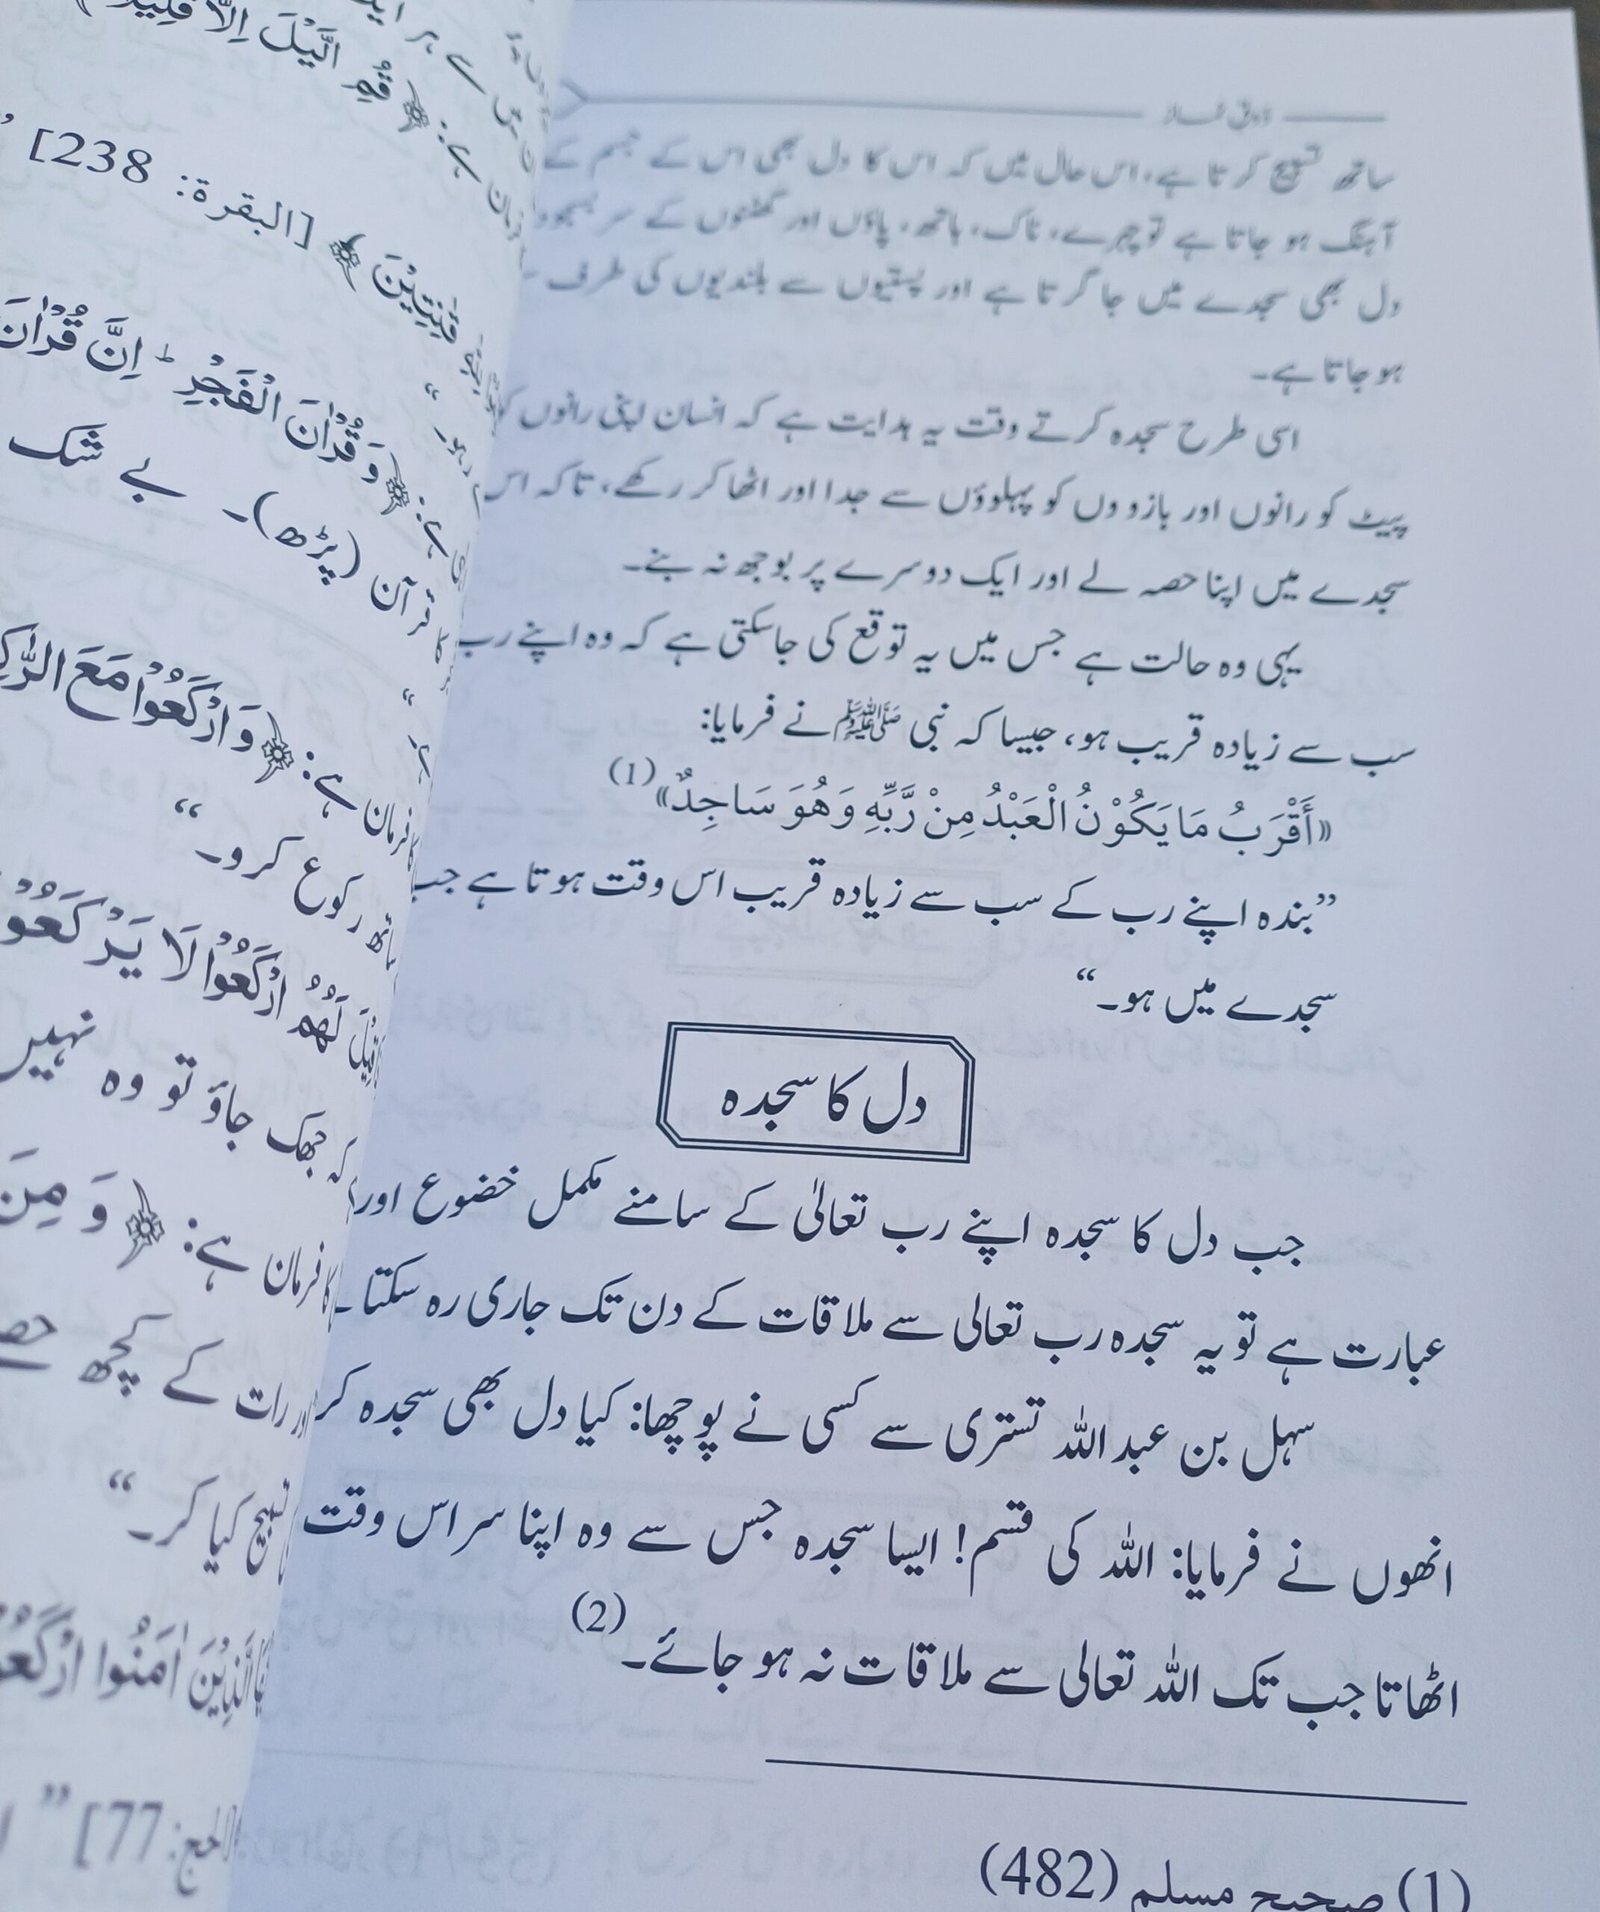 ذوق نماز
ساتھ تسبیح کرتا ہے، اس حال میں کہ اس کا دل بھی اس کے جسم کے
آہنگ ہو جاتا ہے تو چہرے، ناک، ہاتھ، پاؤں اور گھٹنوں کے سربسجود
دل بھی سجدے میں جا گرتا ہے اور پستیوں سے بلندیوں کی طرف
ہو جاتا ہے۔
اسی طرح سجدہ کرتے وقت یہ ہدایت ہے کہ انسان اپنی رانوں کو
پیٹ کو رانوں اور بازووں کو پہلوؤں سے جدا اور اٹھا کر رکھے، تاکہ اس
سجدے میں اپنا حصہ لے اور ایک دوسرے پر بوجھ نہ بنے۔
یہی وہ حالت ہے جس میں یہ توقع کی جاسکتی ہے کہ وہ اپنے رب
سب سے زیادہ قریب ہو، جیسا کہ نبی ﷺ نے فرمایا:
«أَقْرَبُ مَا يَكُوْنُ الْعَبْدُ مِنْ رَّبِّهِ وَهُوَ سَاجِدٌ» (1)
”بندہ اپنے رب کے سب سے زیادہ قریب اس وقت ہوتا ہے جب
سجدے میں ہو۔“
دل کا سجدہ
جب دل کا سجدہ اپنے رب تعالیٰ کے سامنے مکمل خضوع اور
عبارت ہے تو یہ سجدہ رب تعالی سے ملاقات کے دن تک جاری رہ سکتا
سہل بن عبد اللہ تستری سے کسی نے پوچھا: کیا دل بھی سجدہ کر
انھوں نے فرمایا: اللہ کی قسم! ایسا سجدہ جس سے وہ اپنا سر اس وقت
اٹھاتا جب تک اللہ تعالی سے ملاقات نہ ہو جائے۔ (2)
(1) صحیح مسلم (482)
ہر ایک
ہے: ﴿قُمِ الَّيْلَ اِلَّا قَلِيْلًا
قٰنِتِيْنَ﴾ [البقرة: 238] ”
ہو۔“
ہے: ﴿وَقُرْاٰنَ الْفَجْرِ ؕ اِنَّ قُرْاٰنَ
قرآن (پڑھ)۔ بے شک
ہے۔“
فرمان ہے: ﴿وَارْكَعُوْا مَعَ الرّٰكِ
ساتھ رکوع کرو۔“
قِيْلَ لَهُمُ ارْكَعُوْا لَا يَرْكَعُوْ
کہ جھک جاؤ تو وہ نہیں
کا فرمان ہے: ﴿وَمِنَ
اور رات کے کچھ حصے
تسبیح کیا کر۔“
الَّذِيْنَ اٰمَنُوا ارْكَعُوْ
الحج: 77] ”